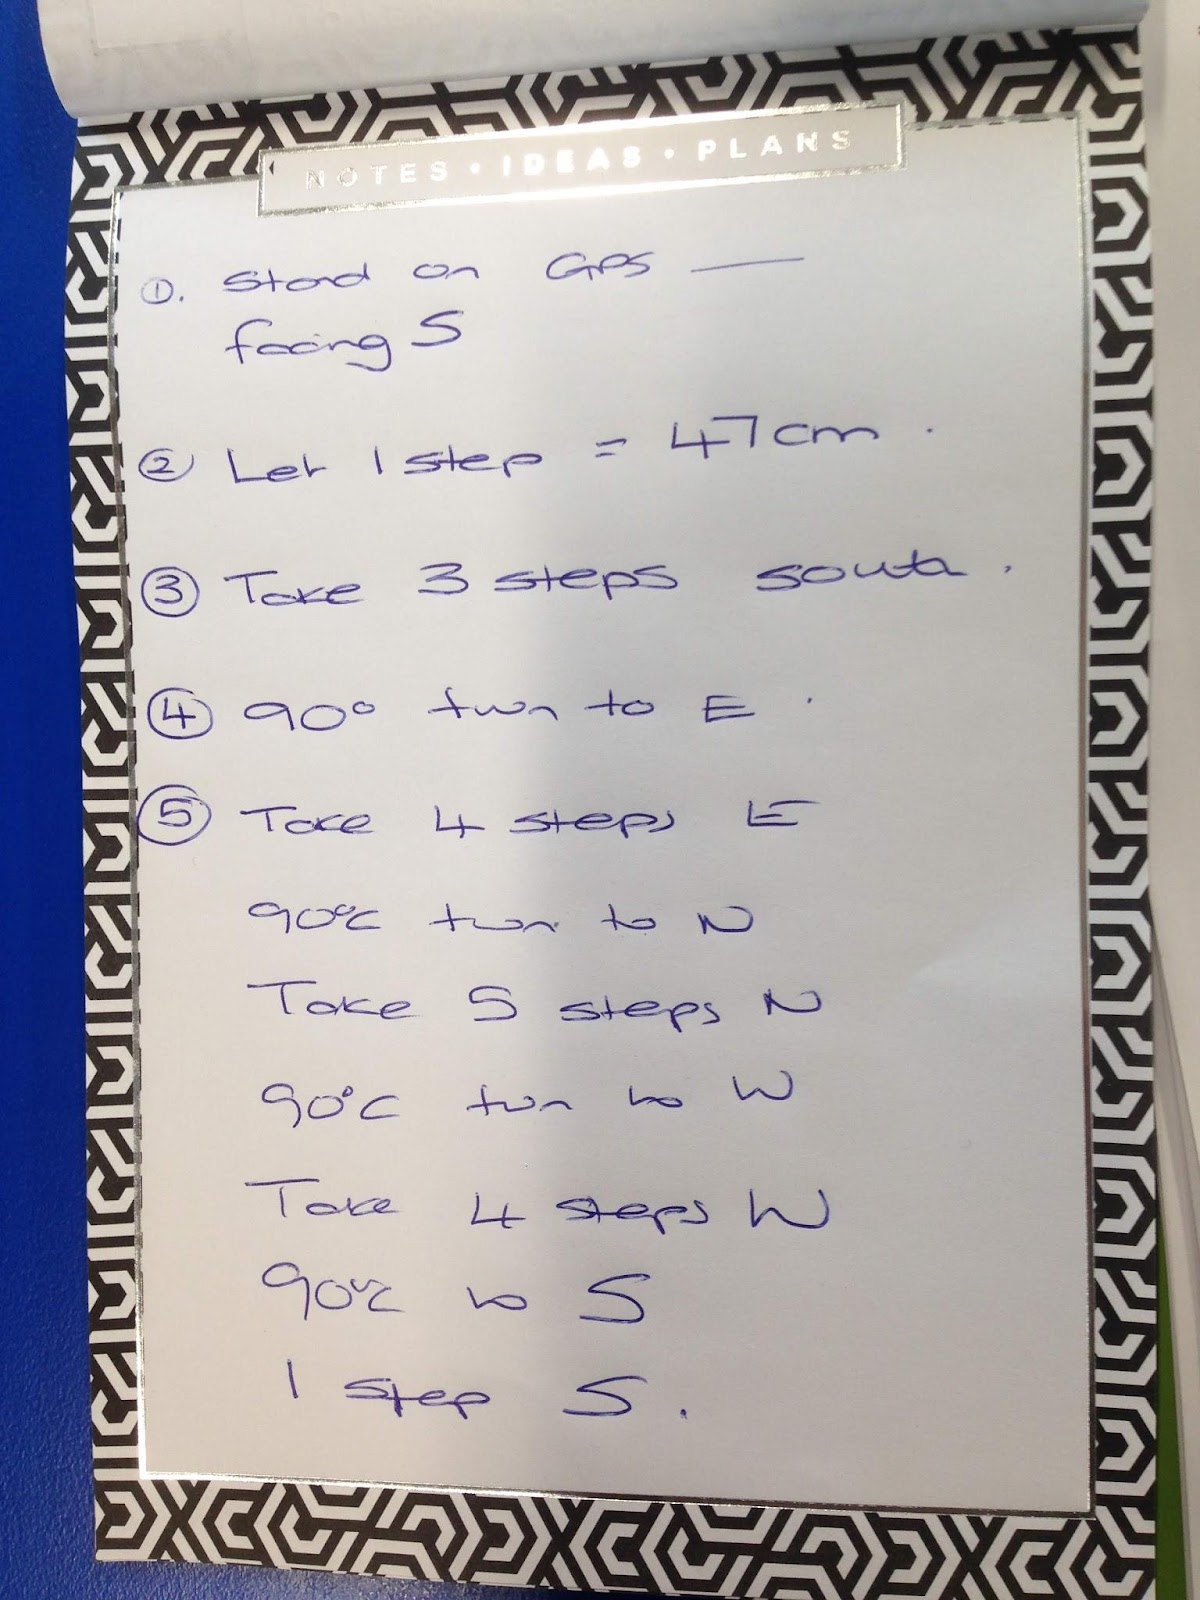 NOTES • IDEAS • PLANS
①. Stand on GPS ——
facing S
② Let 1 step = 47cm.
③ Take 3 steps south.
④ 90° turn to E.
⑤ Take 4 steps E
90°C turn to N
Take 5 steps N
90°C turn to W
Take 4 steps W
90°C to S
1 step S.